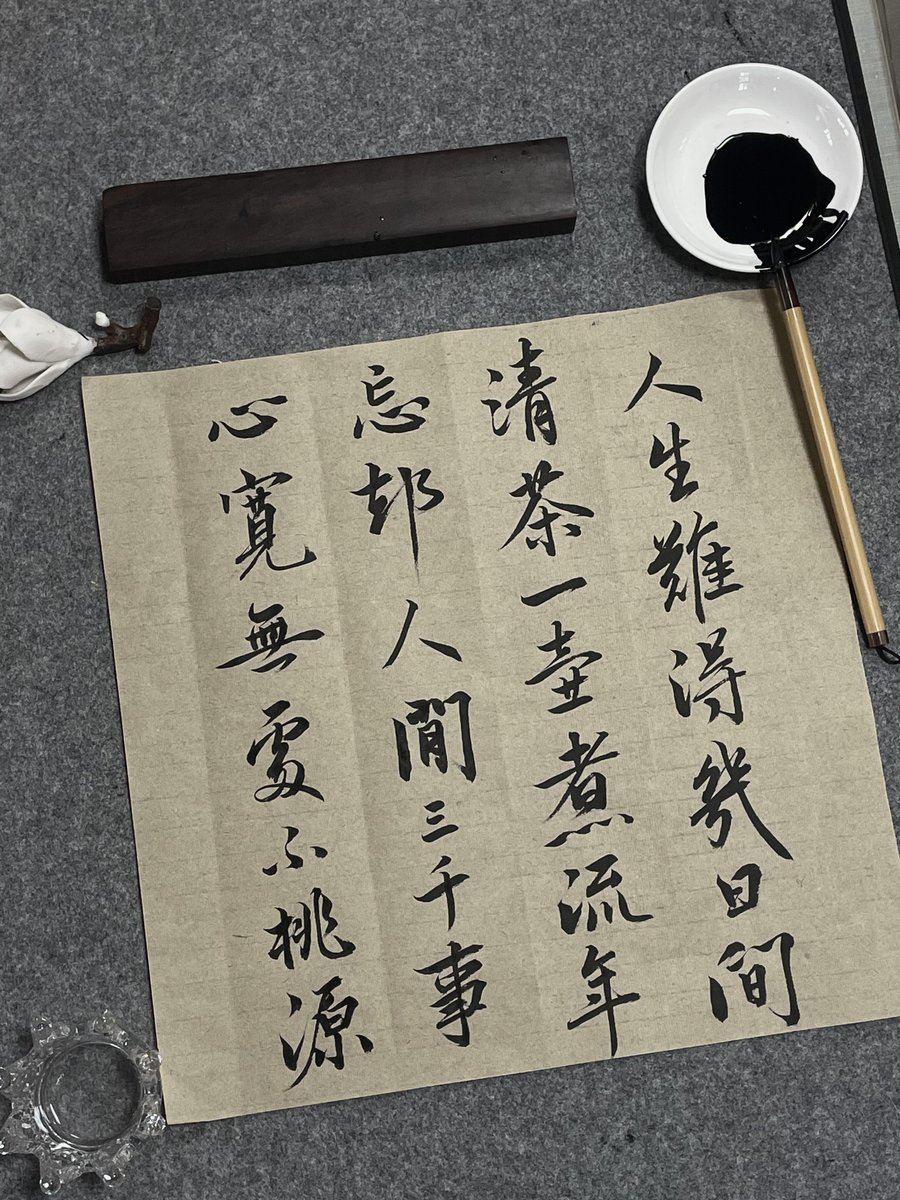 人生難得幾日閒
清茶一壺煮流年
忘却人間三千事
心寬無處不桃源